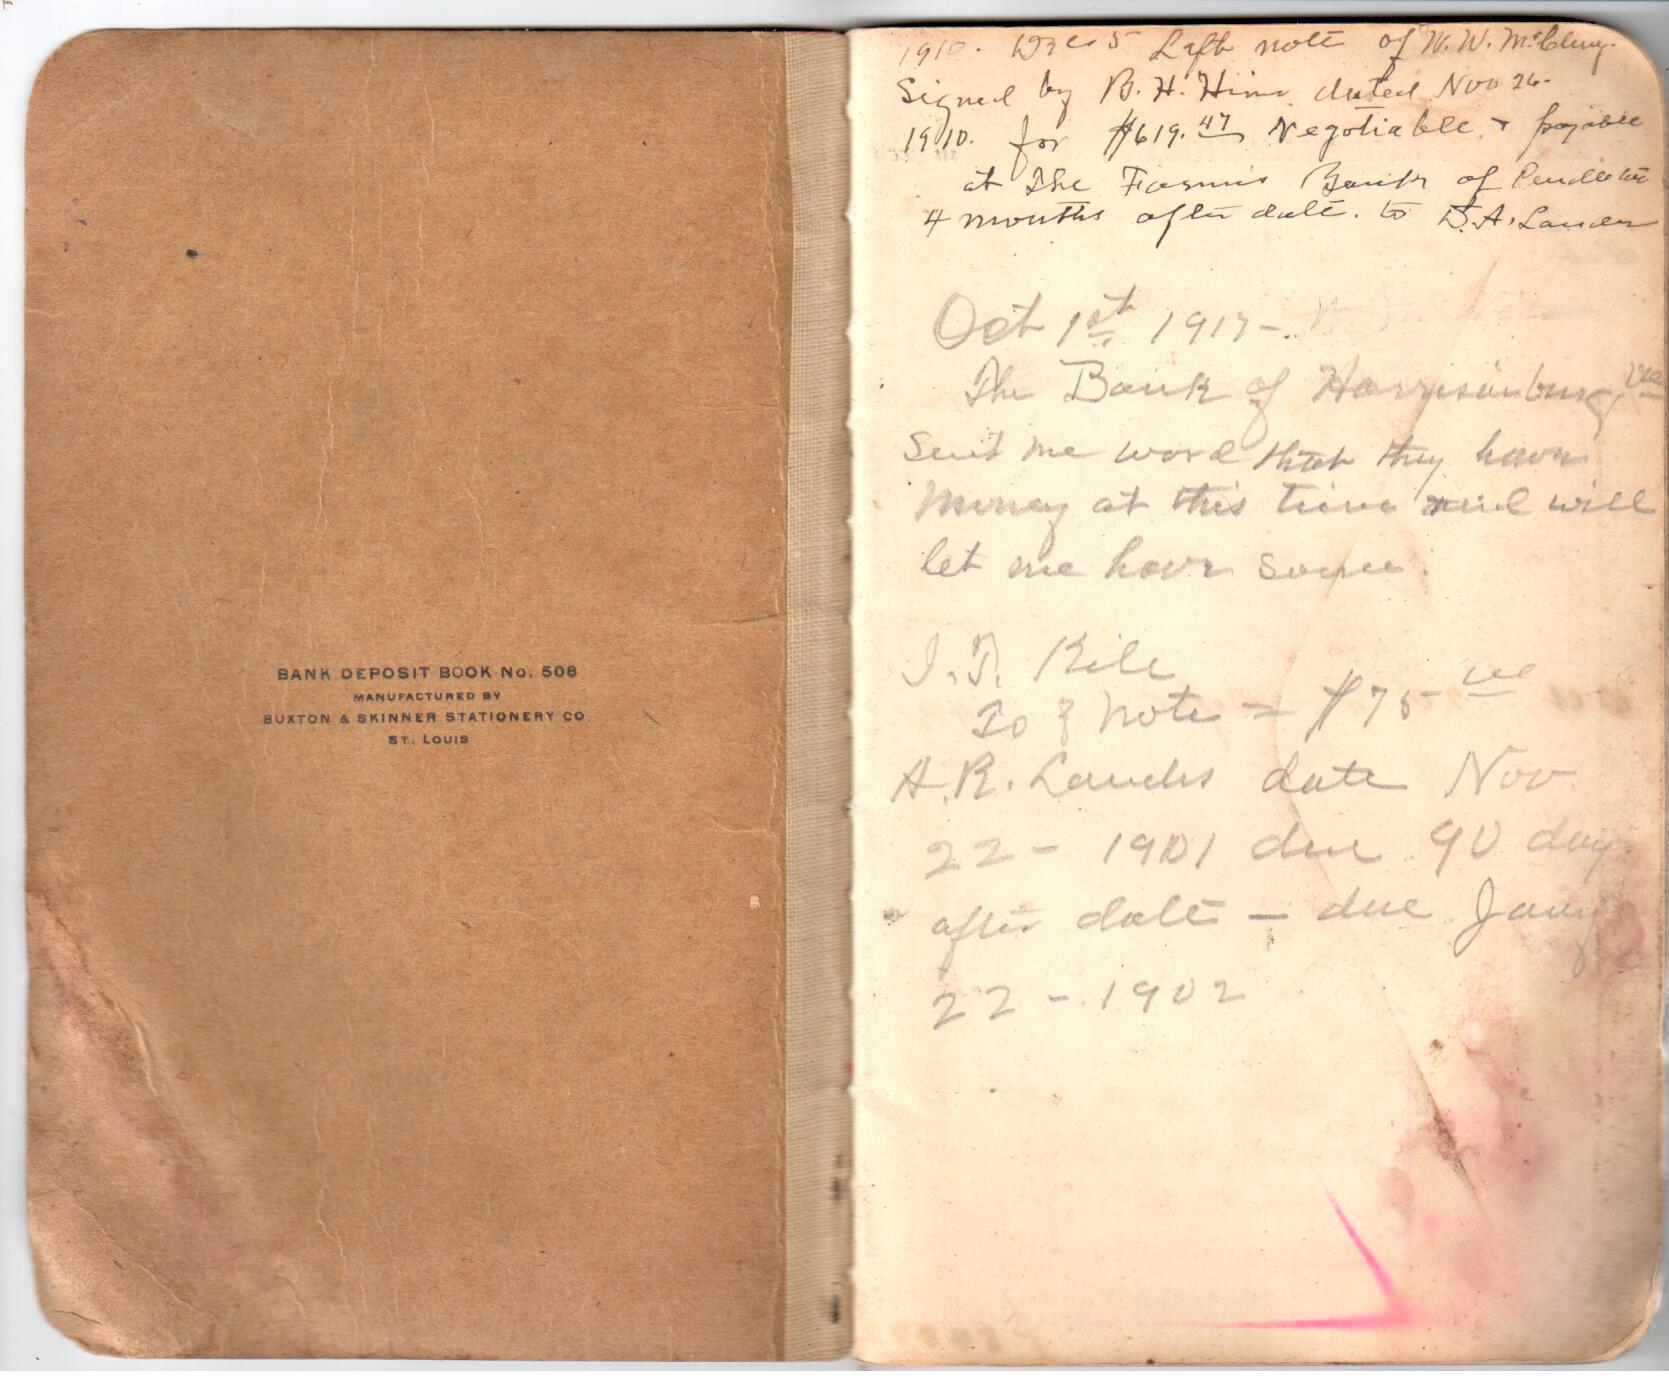 BANK DEPOSIT BOOK No. 508
MANUFACTURED BY
BUXTON & SKINNER STATIONERY CO.
ST. LOUIS
1910. Dec 5 Left note of W. W. McClung.
Signed by B. H. Hiner dated Nov 26-
1910. for $619.47 Negotiable & payable
at The Farmers Bank of Pendleton
4 months after date. to D. A. Lander
Oct 1st 1917-.
The Bank of Harrisonburg Va
sent me word that they have
money at this time and will
let me have some.
To note = $75
A. R. date Nov
22 - 1901 due 90 day
after date - due Jany
22 - 1902